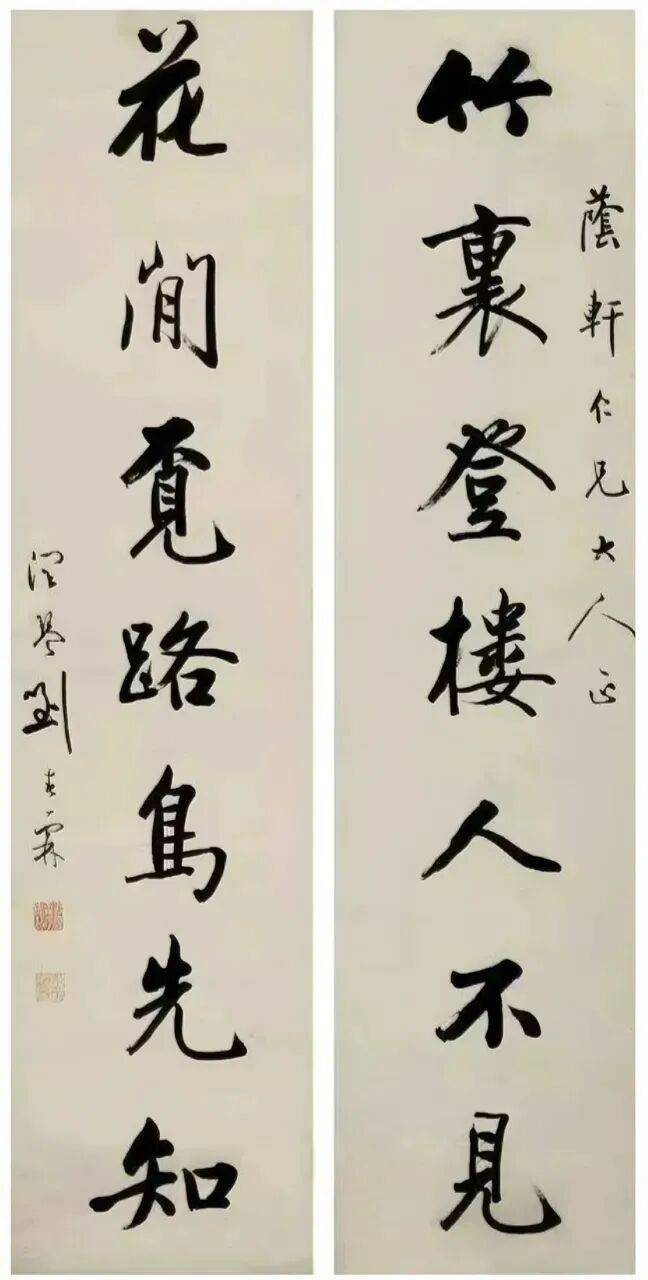 蔭軒仁兄大人正
竹裏登樓人不見
花間覔路鳥先知
潤琴劉春霖